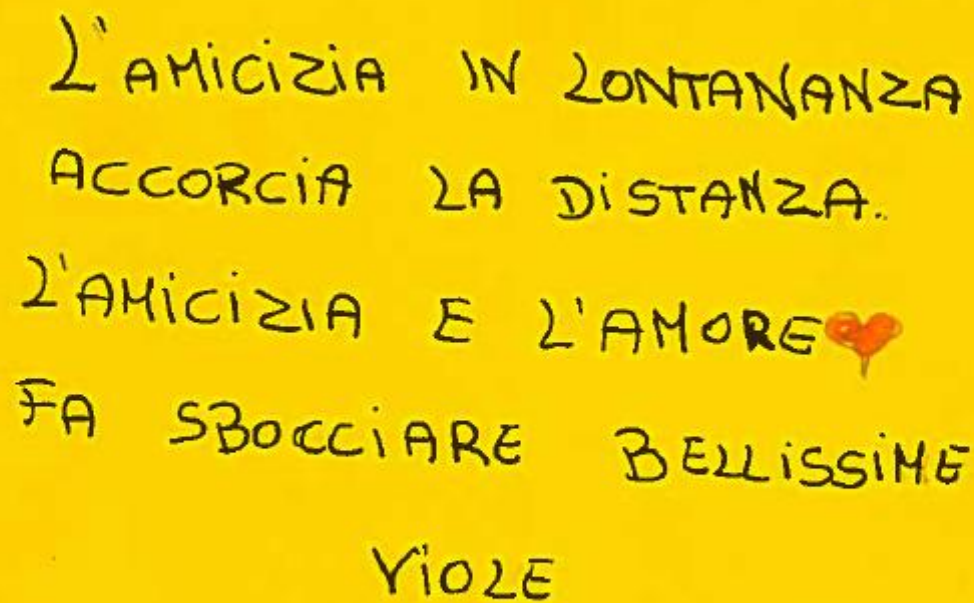 L'AMICIZIA IN LONTANANZA
ACCORCIA LA DISTANZA.
L'AMICIZIA E L'AMORE
FA SBOCCIARE BELLISSIME
VIOLE